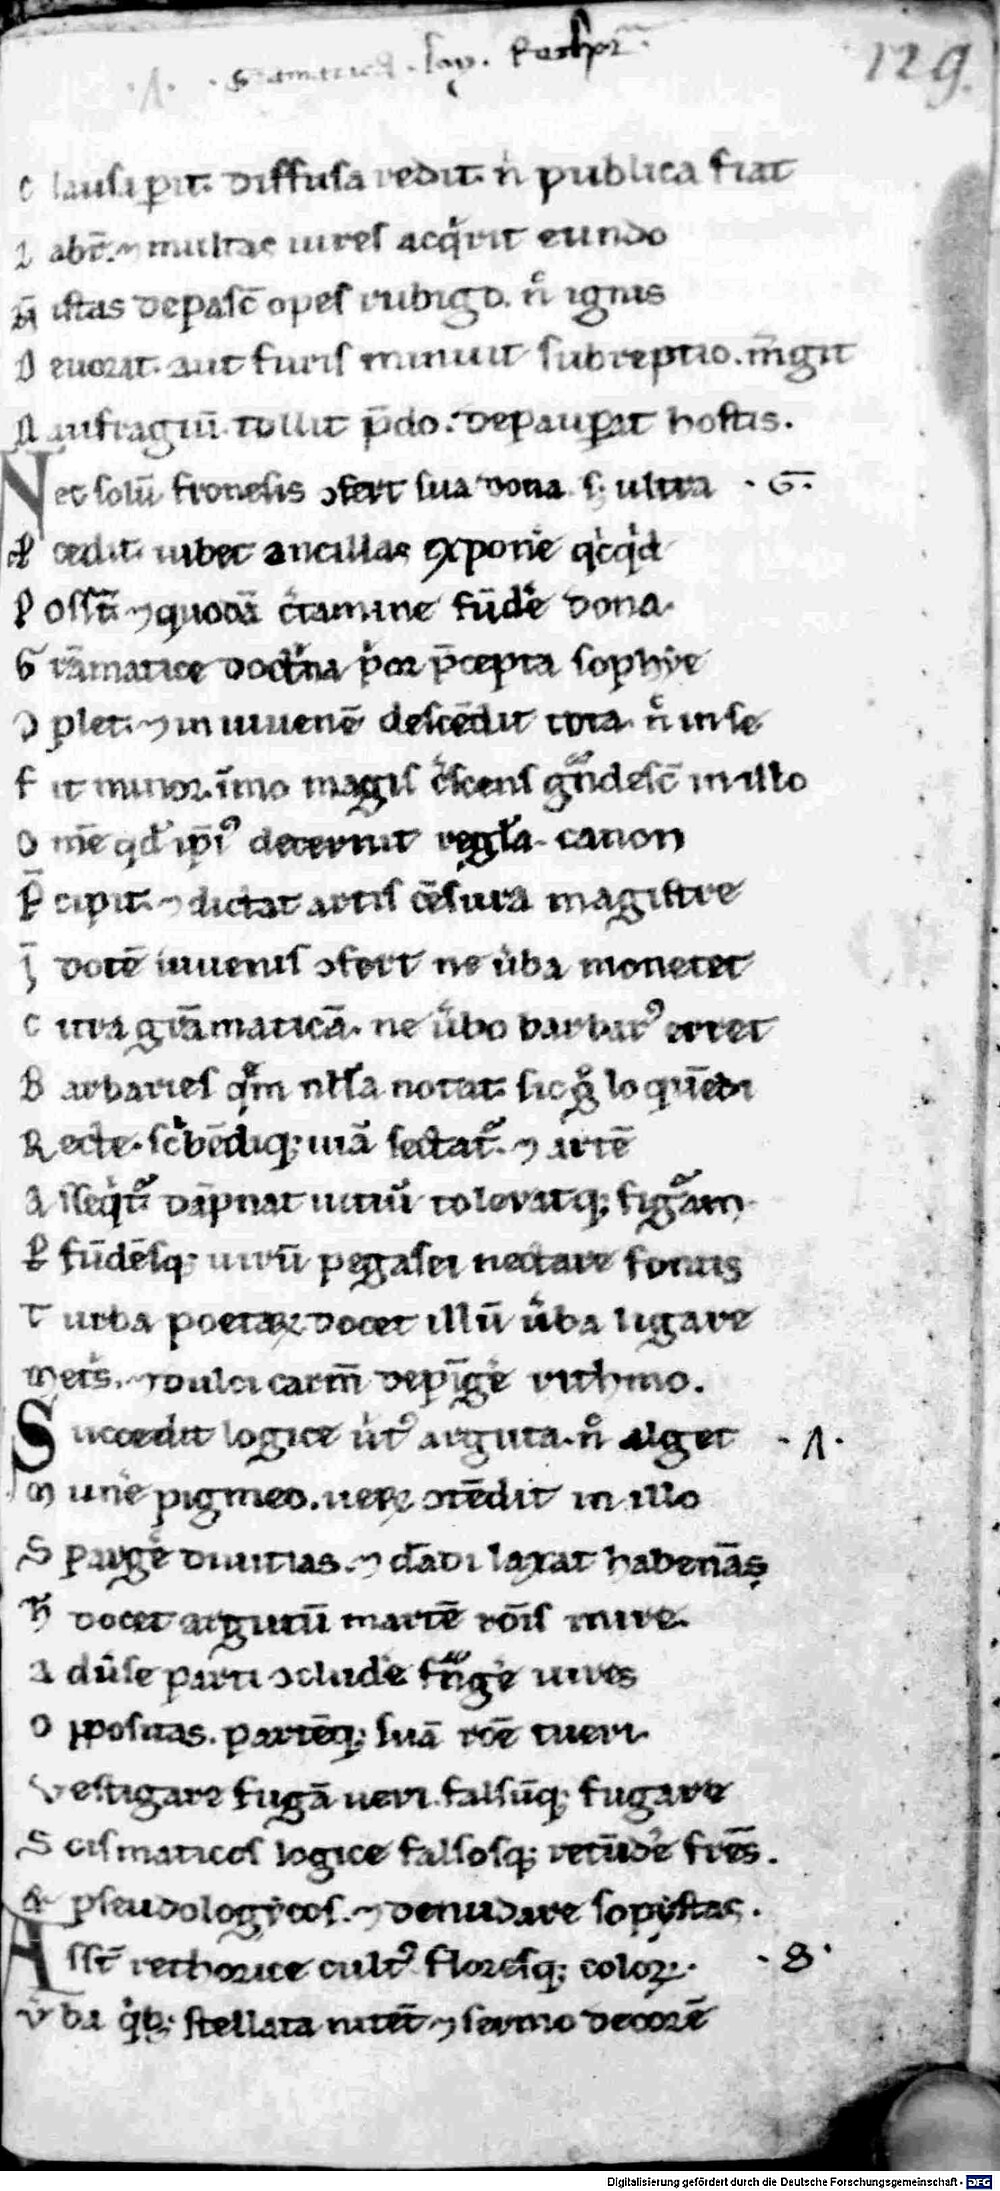 129
C lausa pit. diffusa redit. n̄ publica fiat
L abit̄. ⁊ multas uires acq̇rit eundo
N̄ istas depasc̄ opes rubigo. n̊ ignis
D euorat. aut furis minuit subreptio. m̄git
N aufragiū. tollit p̄do. depaupat hostis.
N ec solū fronesis ɔfert sua dona. s; ultra · G̅ ·
P cedit. iubet ancillas exponē q̇cq̇d
P ossūt. ⁊ quodā c̄tamine fūde dona.
G rāmatice doctna p̓or p̄cepta sophye
O plet. ⁊ in iuuenē descēdit tota. n̊ in se
F it minor. īmo magis c̓scens gn̄desc̄ in illo
O m̄e qd̓ ip̄i⁹ decernit regla. canon
P̄ cipit. ⁊ dictat artis cēsura magistre
I̅ dotē iuuenis ɔfert ne u̓ba monetet
C itra grāmaticā. ne u̓bo barbar⁹ erret
B arbaries qm̄ nlla notat. sic g̊ loquēdi
R ecte. sc̓bēdiq; uiā sectat᷑. ⁊ artē
A sseq̇t᷑. dāpnat uitiū toleratq; figam.
P fūdēsq; uirū pegasei nectare fontis
T urba poetaꝝ docet illū u̓ba ligare
M etris. ⁊ dulci carm̄ depīge rithmo.
S uccedit logice u̓t⁹ arguta. n̊ alget · Λ ·
M unē pigmeo. ueꝝ ɔtēdit in illo
S parge diuitias. ⁊ dādi laxat habenas
H̄ docet argutū martē rōis inire.
A du̓se parti ɔclude fnge uires
O ppositas. partēq; suā rōē tueri.
V estigare fugā ueri. falsūq; fugare
S cismaticos logice falsosq; retūde fr̄es.
& pseudologycos. ⁊ denudare sopistas.
A sst̄ rethorice cult⁹. floresq; coloꝝ.
V̓ ba q̇b; stellata nitēt ⁊ sermo decorē
Digitalisierung gefördert durch die Deutsche Forschungsgemeinschaft - DFG